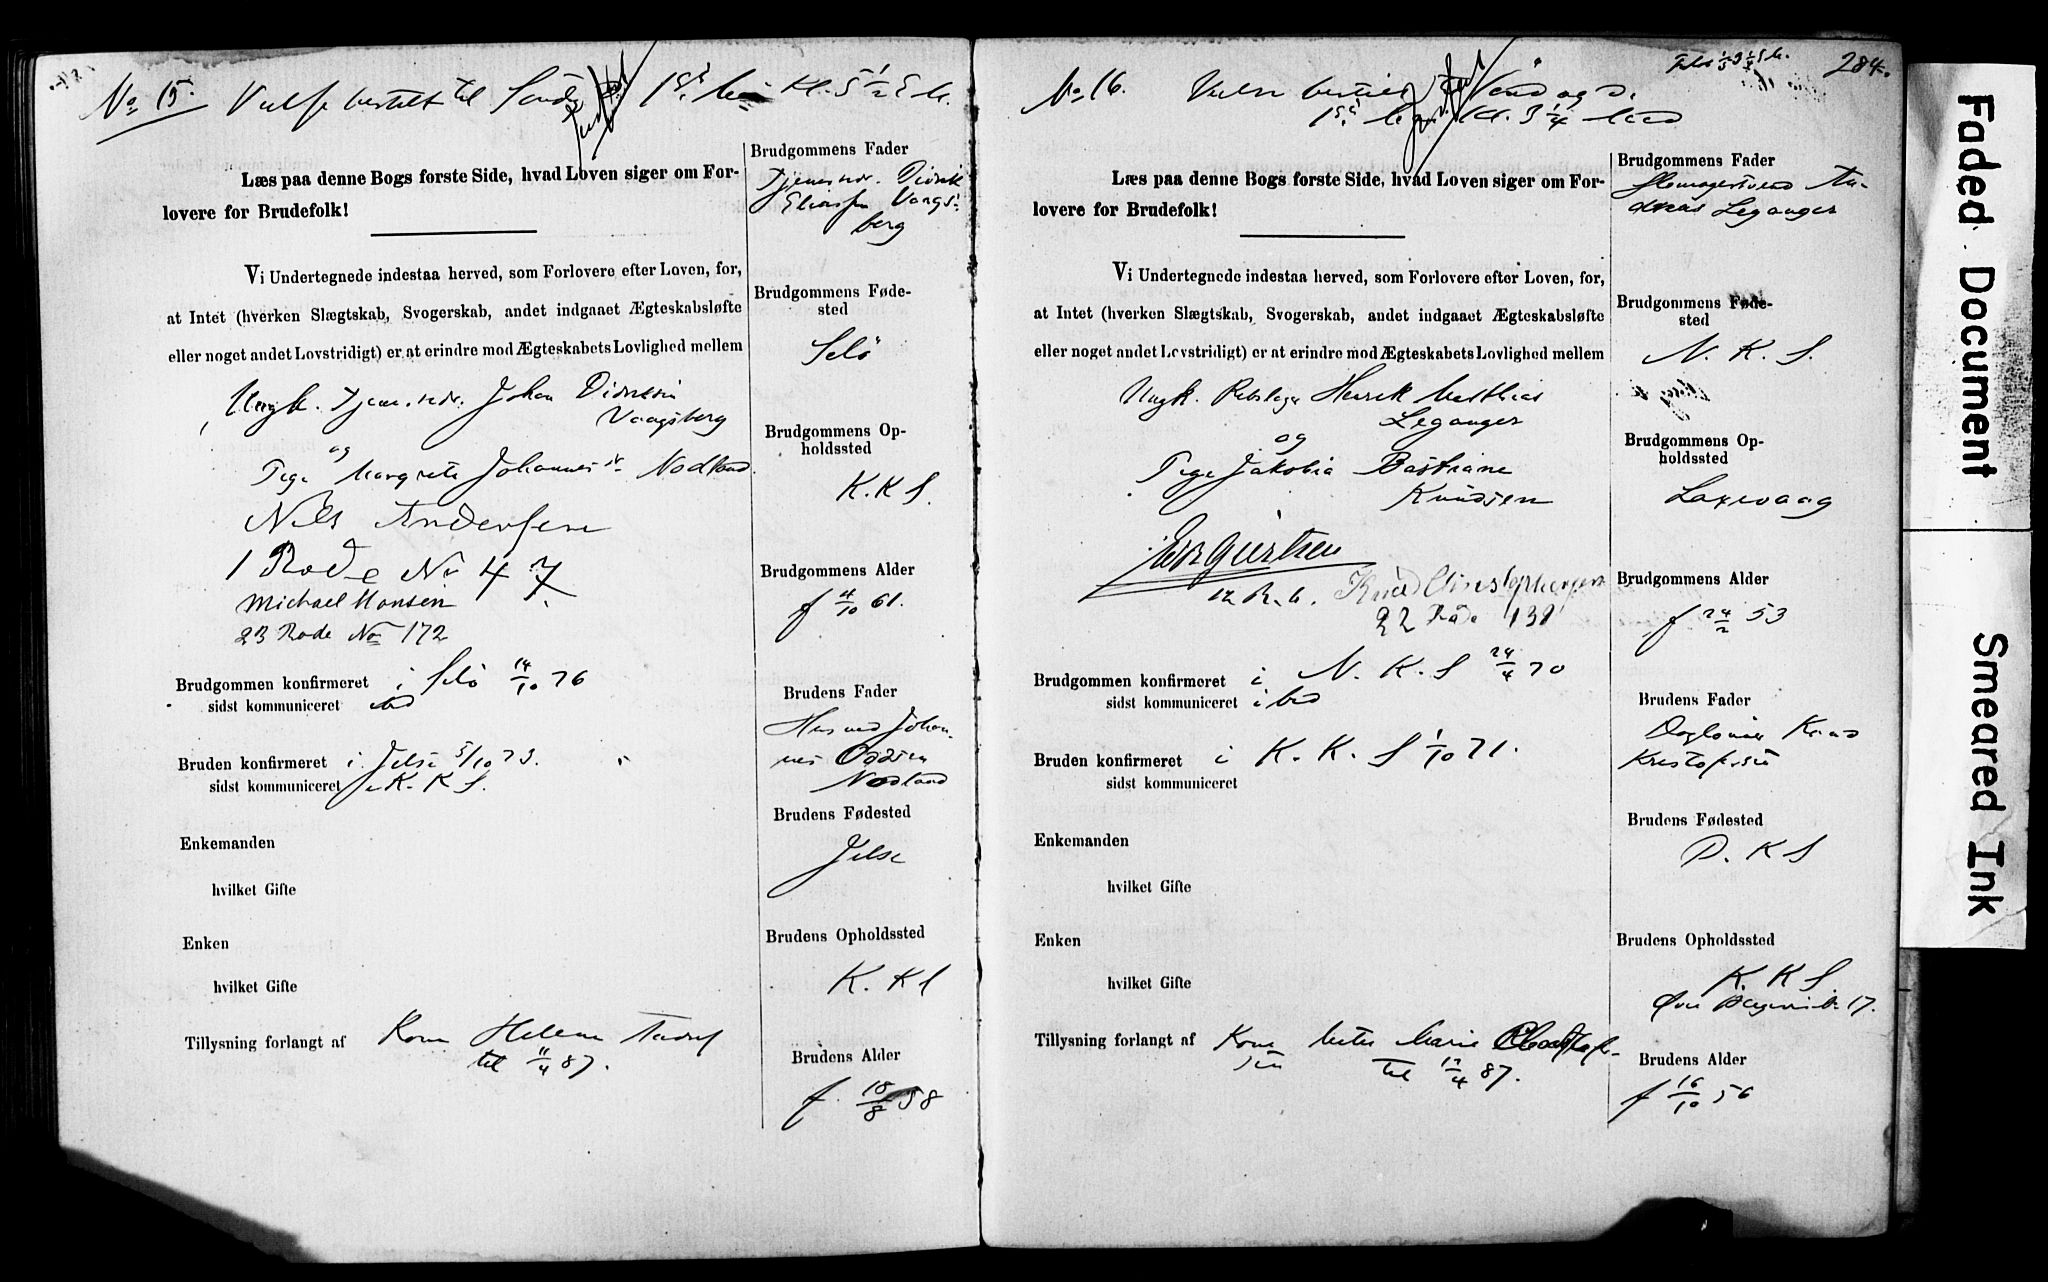 No 15.
bestilt til
1ste Mai Kl. 5 1/2 E. M.
Læs paa denne Bogs første Side, hvad Loven siger om For-
lovere for Brudefolk!
Vi Undertegnede indestaa herved, som Forlovere efter Loven, for,
at Intet (hverken Slægtskab, Svogerskab, andet indgaaet Ægteskabsløfte
eller noget andet Lovstridigt) er at erindre mod Ægteskabets Lovlighed mellem
Ungk. Johan
Vaagsberg
og
Pige Margrete Johannesdr Nodland.
Nils Andersen
1 Rode No 47
Michael Monsen
23 Rode No 172
Brudgommen konfirmeret i Selö 14/10 76
sidst kommuniceret ibid
Bruden konfirmeret i Jelse 5/10 73.
sidst kommuniceret i K. K S.
Enkemanden
hvilket Gifte
Enken
hvilket Gifte
Tillysning forlangt af Kone Helene
til 11/4 87.
Brudgommens Fader
Didrik
Vaags-
berg
Brudgommens Føde-
sted
Selö
Brudgommens Op-
holdssted
K. K S.
Brudgommens Alder
f 4/10 61.
Brudens Fader
Husmd Johan-
nes
Nodland
Brudens Fødested
Jelse
Brudens Opholdssted
K. K S
Brudens Alder
f. 18/8 58
284.
No 16.
1ste Mai Kl. 3 1/4
Læs paa denne Bogs første Side, hvad Loven siger om For-
lovere for Brudefolk!
Vi Undertegnede indestaa herved, som Forlovere efter Loven, for,
at Intet (hverken Slægtskab, Svogerskab, andet indgaaet Ægteskabsløfte
eller noget andet Lovstridigt) er at erindre mod Ægteskabets Lovlighed mellem
Ungk. Henrik Mathias
Leganger
og
Pige Jakobia Bastiane
Knudsen
Knud Christophersen
22 Rode 131
Brudgommen konfirmeret i N. K. S 24/4 70
sidst kommuniceret ibid
Bruden konfirmeret i K. K. S 1/10 71.
sidst kommuniceret
Enkemanden
hvilket Gifte
Enken
hvilket Gifte
Tillysning forlangt af Kone Marie
Til 12/4 87.
Brudgommens Fader
An-
dreas Leganger
Brudgommens Føde-
sted
N. K. S.
Brudgommens Op-
holdssted
Laxevaag
Brudgommens Alder
f 24/2 53
Brudens Fader
Knud
Kristofersen
Brudens Fødested
D. K S
Brudens Opholdssted
K. K S
17.
Brudens Alder
f 16/10 56
Faded Document
Smeared Ink